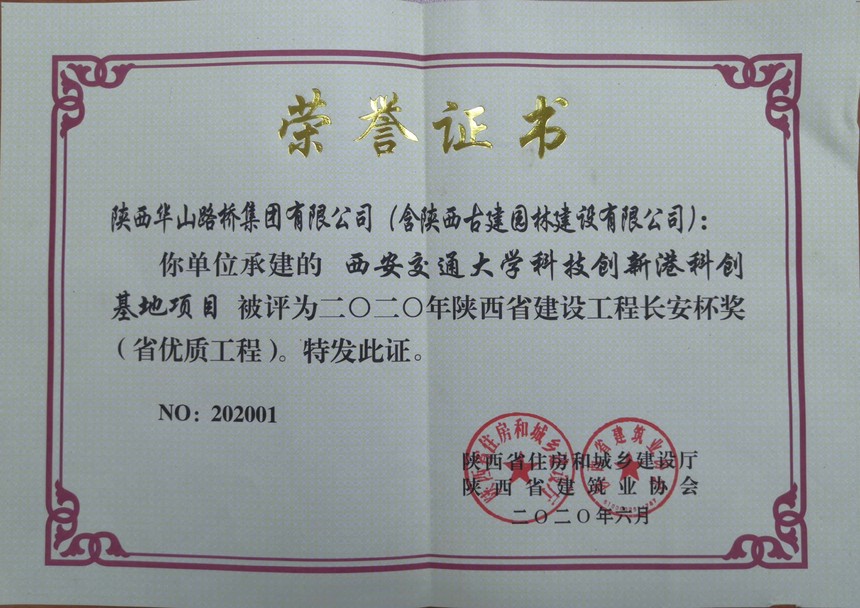 荣誉证书
陕西华山路桥集团有限公司（含陕西古建园林建设有限公司）：
你单位承建的 西安交通大学科技创新港科创
基地项目 被评为二〇二〇年陕西省建设工程长安杯奖
（省优质工程）。特发此证。
NO：202001
陕西省住房和城乡建设厅
陕西省建筑业协会
二〇二〇年六月